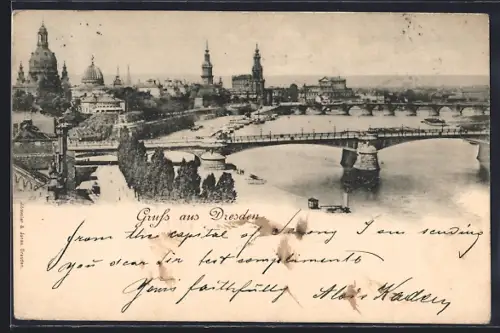 Gruß aus Dresden
from the capital of Saxony I am sending
you dear Sir best compliments
Yours faithfully Alois Kaden